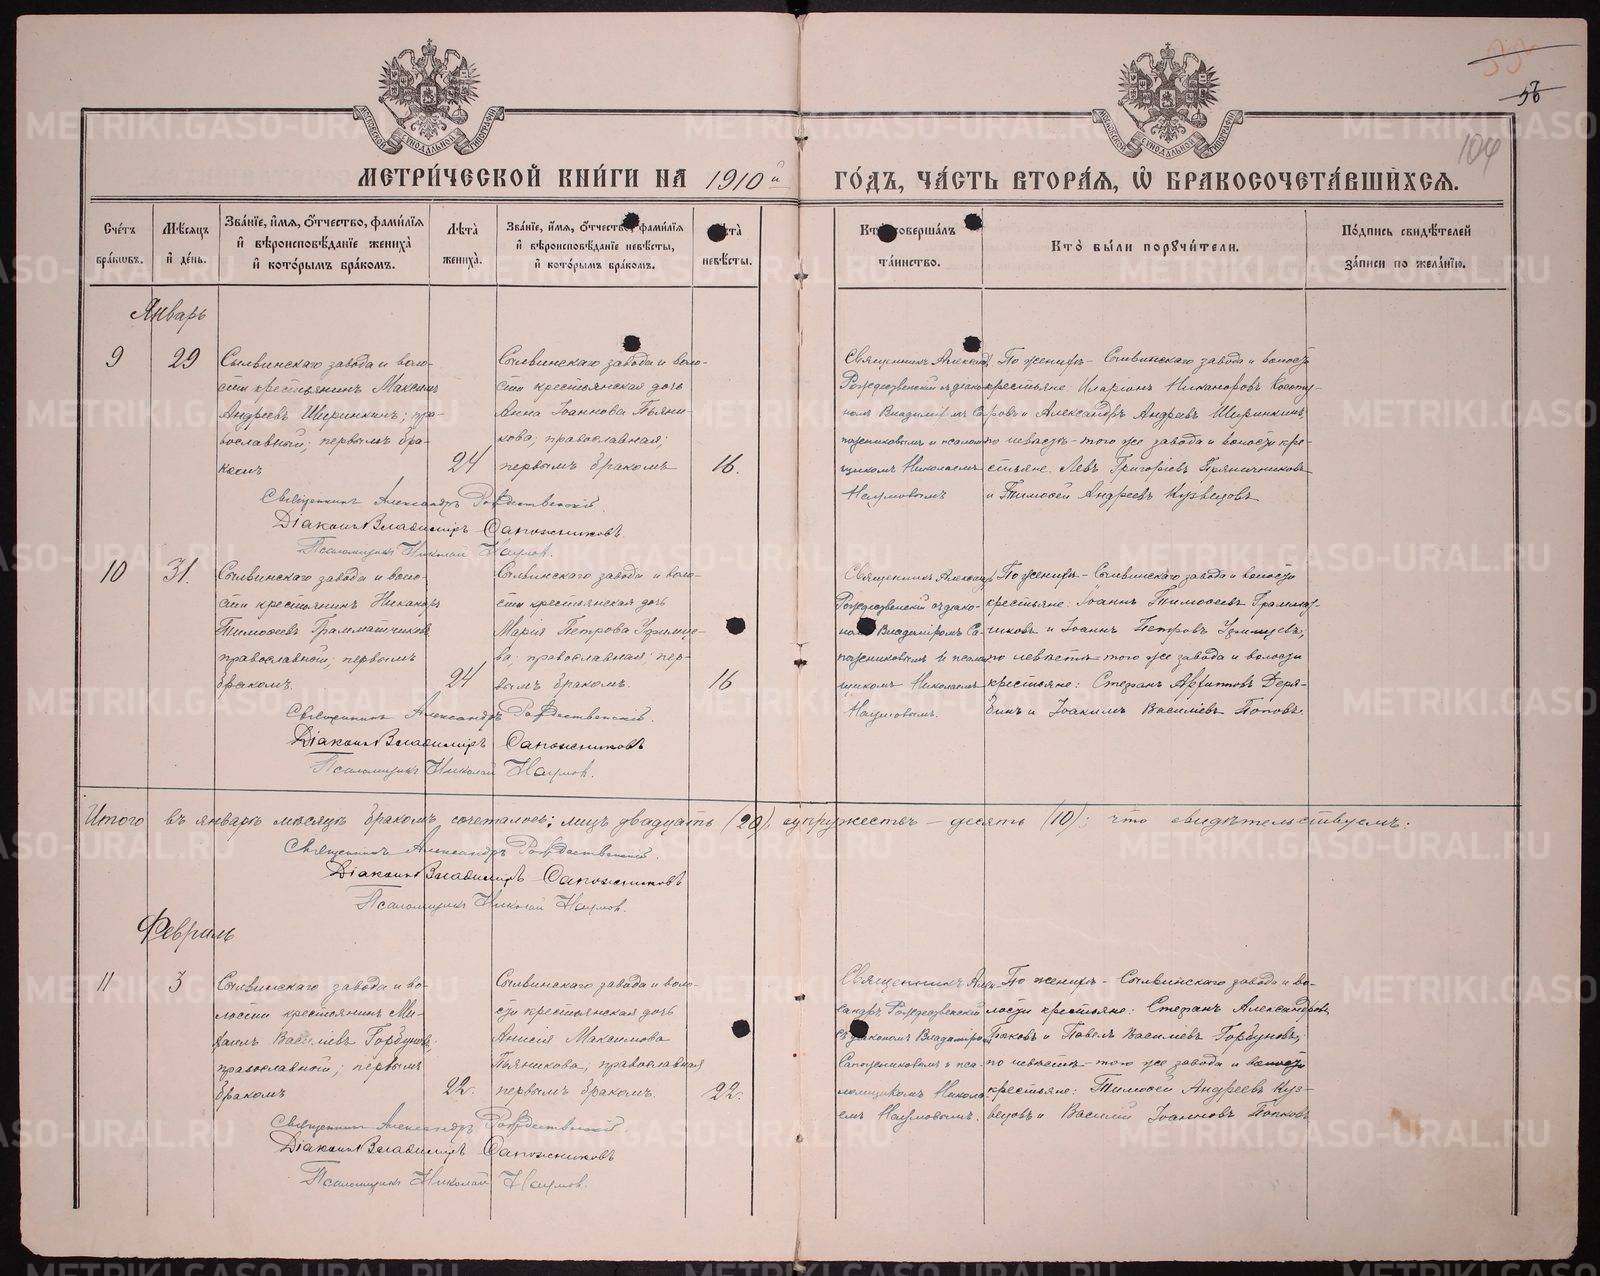 55
56
104
МЕТРИ́ЧЕСКОЙ КНИ́ГИ НА 1910й ГО́ДЪ, ЧА́СТЬ ВТОРА́Я, Ѡ҆ БРАКОСОЧЕТА́ВШИХСЯ.
Сче́тъ бра́кѡвъ.
Мѣ́сяцъ и҆ де́нь.
Зва́нїе, и҆́мя, ѻ҆́тчество, фами́лїя
и҆ вѣроисповѣ́данїе жениха̀
и҆ кото́рымъ бра́комъ.
Лѣ́та жениха̀.
Зва́нїе, и҆́мя, ѻ҆́тчество, фами́лїя
и҆ вѣроисповѣ́данїе невѣ́сты,
и҆ кото́рымъ бра́комъ.
Лѣ́та невѣ́сты.
Кто̀ соверша́лъ
та́инство.
Кто̀ бы́ли порꙋчи́тели.
По́дпись свидѣ́телей
за́писи по жела́нїю.
Январь
9
29
Сылвинскаго завода и воло-
сти крестьянинъ Максимъ
Андреевъ Ширинкинъ; пра-
вославный; первымъ бра-
комъ
24
Сылвинскаго завода и воло-
сти крестьянская дочь
Анна Іоаннова Пьяни-
кова; православная;
первымъ бракомъ
16.
Священникъ Александ.
Рождественскій съ діако-
номъ Владиміромъ Са-
пожниковымъ и псалом-
щикомъ Николаемъ
Наумовымъ
По женихѣ – Сылвинскаго завода и волости
крестьяне: Иларіонъ Никаноровъ
ровъ и Александръ Андреевъ Ширинкинъ,
по невѣстѣ – того же завода и волости кре-
стьяне: Левъ Григорьевъ Пряничниковъ
и Тимофей Андреевъ Кузвецовъ
Священникъ Александръ Рождественскій.
Діаконъ Владиміръ Сапожниковъ
Псаломщикъ Николай Наумов.
10
31.
Сылвинскаго завода и воло-
сти крестьянинъ Никаноръ
Тимофеевъ Грамматчиковъ
православный, первымъ
бракомъ.
24
Сылвинскаго завода и воло-
сти крестьянская дочь
Марія Петрова Уфимце-
ва; православная; пер-
вымъ бракомъ.
16
Священникъ Александр
Рождественскій съ діако-
номъ Владиміромъ Са-
пожниковымъ и псалом-
щикомъ Николаемъ
Наумовымъ.
По женихѣ – Сылвинскаго завода и волости
крестьяне: Іоаннъ Тимофеевъ Граммат-
чиковъ и Іоаннъ Петровъ Уфимцевъ;
по невѣстѣ – того же завода и волости
крестьяне: Степанъ Архиповъ Деря-
бинъ и Іоакимъ Василіевъ Поповъ.
Священникъ Александръ Рождественскій.
Діаконъ Владиміръ Сапожниковъ
Псаломщикъ Николай Наумов.
Итого въ январѣ мѣсяцѣ бракомъ сочеталось; лицъ двадцать (20), супружествъ – десять (10); что свидѣтельствуемъ:
Священникъ Александръ Рождественскій.
Діаконъ Владиміръ Сапожниковъ
Псаломщикъ Николай Наумов.
Февраль
11
3
Сылвинскаго завода и во-
лости крестьянинъ Ми-
хаилъ Василіевъ Горбуновъ;
православный; первымъ
бракомъ
22.
Сылвинскаго завода и воло-
сти крестьянская дочь
Анисія Максимова
Пьяникова; православная
первымъ бракомъ.
22.
Священникъ Алек-
сандръ Рождественскій
съ діакономъ Владиміро.
Сапожниковымъ и пса-
ломщикомъ Никола-
емъ Наумовымъ.
По женихѣ – Сылвинскаго завода и во-
лости крестьяне: Степанъ Александровъ
Быковъ и Павелъ Василіевъ Горбуновъ;
по невѣстѣ – того же завода и волости
крестьяне: Тимофей Андреевъ Куз-
вецовъ и Василій Іоанновъ Попковъ
Священникъ Александръ Рождественскій
Діаконъ Владиміръ Сапожниковъ
Псаломщикъ Николай Наумов.
METRIKI.GASO-URAL.RU